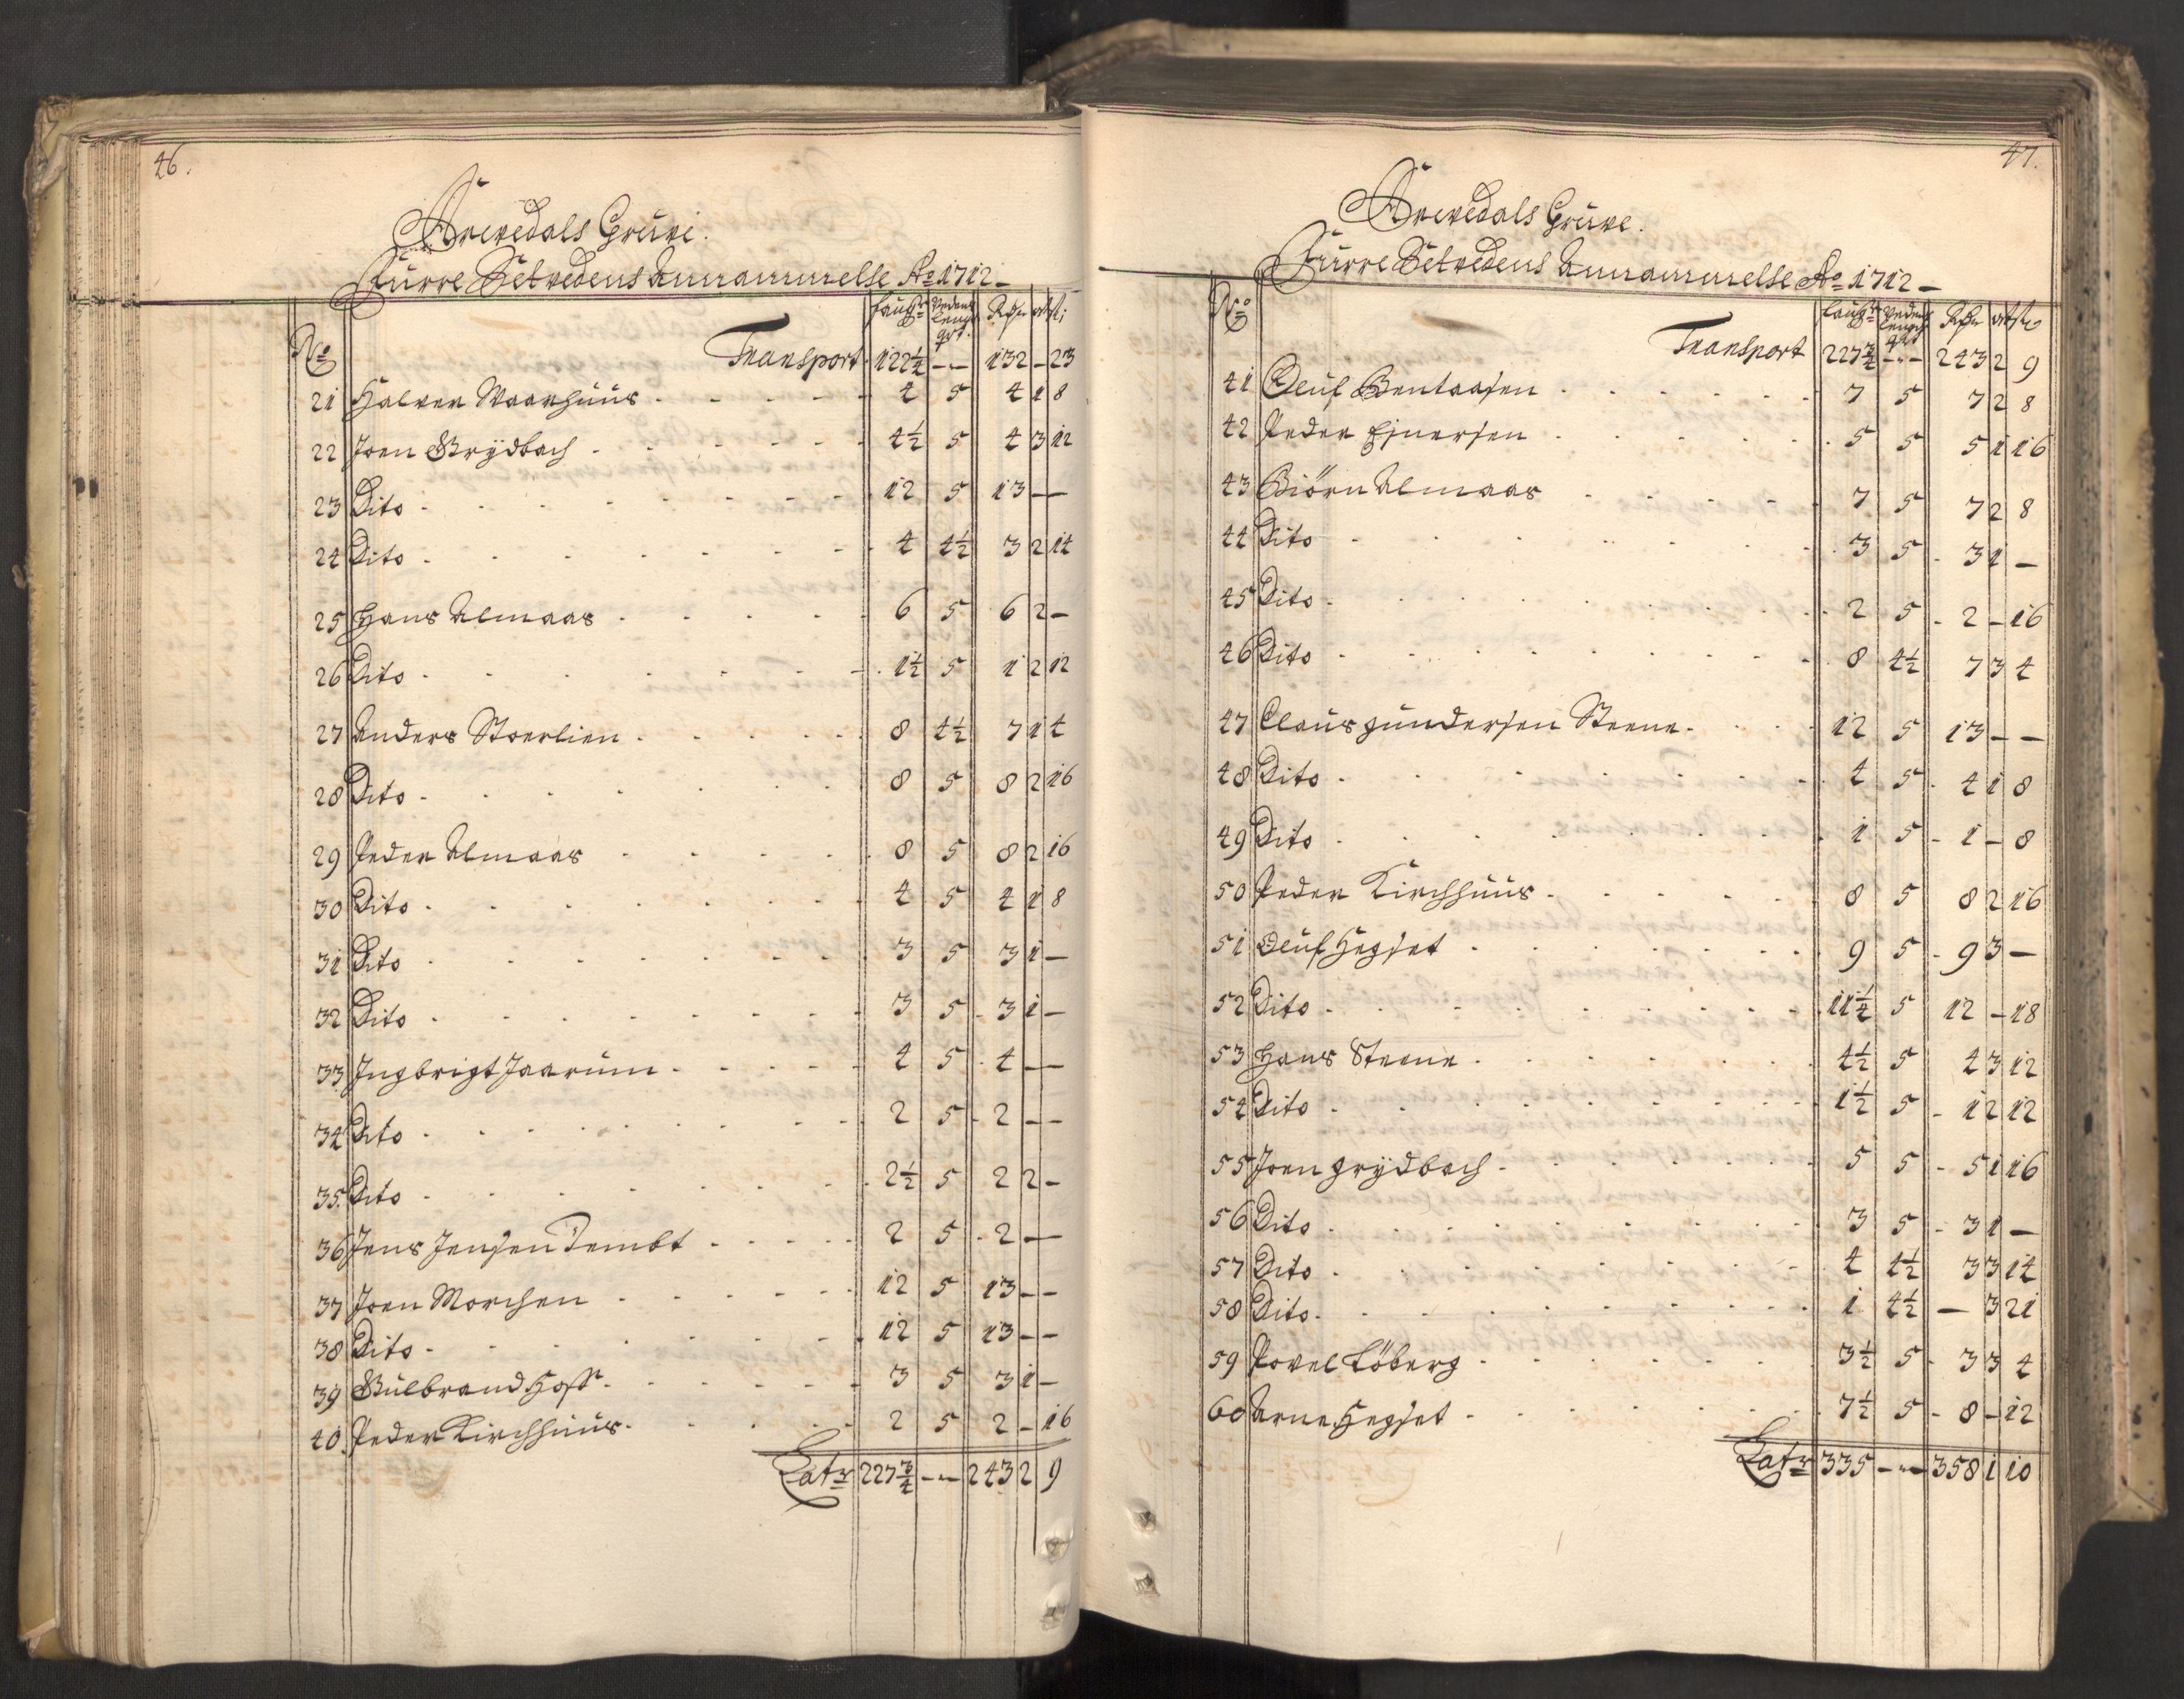 46.
Arvedals Grüve.
Fürre Setvedens Annammelse Ao 1712 –
No fauỹr Vedens lengd qrt. Rdr ort ß
Transport 122 1/4 – " – 132 – 23
21 Halver Waarhüüs 4 5 4 1 8
22 Joen Grÿdbach 4 1/2 5 4 3 12
23 Dito 12 5 13 –
24 Dito 4 4 1/2 3 2 14
25 Hans Almaas 6 5 6 2 –
26 Dito 1 1/2 5 1 2 12
27 Anders Stoerlien 8 4 1/2 7 1 4
28 Dito 8 5 8 2 16
29 Peder Almaas 8 5 8 2 16
30 Dito 4 5 4 1 8
31 Dito 3 5 3 1 –
32 Dito 3 5 3 1 –
33 Ingbrigt Jaarüm 4 5 4 – –
34 Dito 2 5 2 – –
35 Dito 2 1/2 5 2 2 –
36 Jens Jensen Tembt 2 5 2 –
37 Joen Morchen 12 5 13 – –
38 Dito 12 5 13 – –
39 Gülbrand Hoff 3 5 3 1 –
40 Peder Kirchhüüs 2 5 2 – 16
Latr 227 3/4 – " – 243 2 9
47.
Arvedals Grüve.
Fürre Setvedens Annammelse Ao 1712 –
No fauỹr Vedens lengd qrt Rdr ort ß
Transport 227 3/4 – " – 243 2 9
41 Olüf Bentaasen 7 5 7 2 8
42 Peder Ejnersen 5 5 5 1 16
43 Biörn Almaas 7 5 7 2 8
44 Dito 3 5 3 1 –
45 Dito 2 5 2 – 16
46 Dito 8 4 1/2 7 3 4
47 Claus gündersen Steene 12 5 13 – –
48 Dito 4 5 4 1 8
49 Dito 1 5 1 – 8
50 Peder Kirchhüüs 8 5 8 2 16
51 Olüf Hegset 9 5 9 3 –
52 Dito 11 1/4 5 12 – 18
53 Hans Steene 4 1/2 5 4 3 12
54 Dito 1 1/2 5 1 2 12
55 Joen grÿdbach 5 5 5 1 16
56 Dito 3 5 3 1 –
57 Dito 4 4 1/2 3 3 14
58 Dito 1 4 1/2 – 3 21
59 Povel Löberg 3 1/2 5 3 3 4
60 Arne Hegset 7 1/2 5 8 – 12
Latr 335 – " – 358 1 10